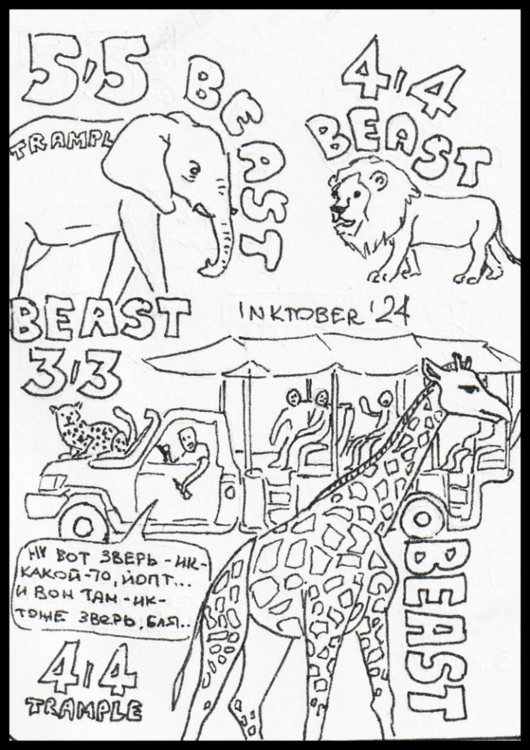 5/5 BEAST
TRAMPL
4/4
BEAST
BEAST
3/3
INKTOBER '24
НУ ВОТ ЗВЕРЬ -ИК-
КАКОЙ-ТО, ЙОПТ...
И ВОН ТАМ -ИК-
ТОЖЕ ЗВЕРЬ, БЛЯ..
BEAST
4/4
TRAMPLE